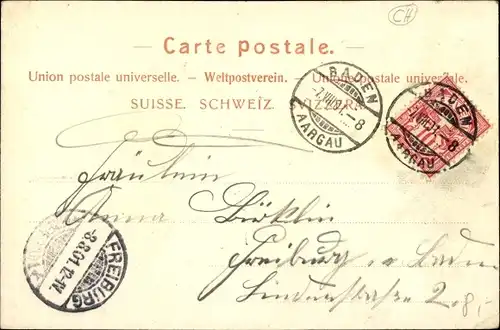 CH
Carte postale.
Union postale universelle. – Weltpostverein. – Unione postale universale.
SUISSE. SCHWEIZ. SVIZZERA.
BADEN
-7.VIII.01.-8
AARGAU
BADEN
-7.VIII.01.-8
AARGAU
Fräulein
Anna Bürklin
Freiburg i. Baden
Lindenstrasse
FREIBURG
-8.8.01.12-1V.